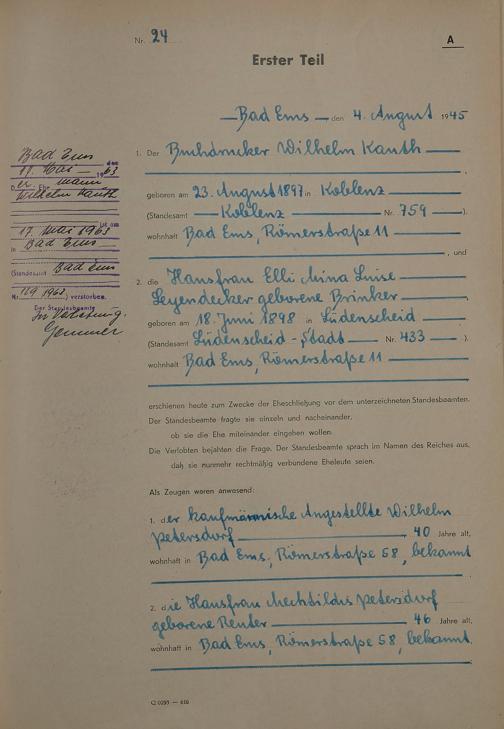 Nr. 24
A
Erster Teil
Bad Ems, den 4. August 1945
1. Der Buchdrucker Wilhelm Kauth
geboren am 23. August 1897 in Koblenz
(Standesamt Koblenz Nr. 759).
wohnhaft Bad Ems, Römerstraße 11
, und
2. die Hausfrau Elli Mina Luise
Leyendecker geborene Brinker
geboren am 18. Juni 1898 in Lüdenscheid
(Standesamt Lüdenscheid-Stadt Nr. 433).
wohnhaft Bad Ems, Römerstraße 11
erschienen heute zum Zwecke der Eheschließung vor dem unterzeichneten Standesbeamten.
Der Standesbeamte fragte sie einzeln und nacheinander,
ob sie die Ehe miteinander eingehen wollen.
Die Verlobten bejahten die Frage. Der Standesbeamte sprach im Namen des Reiches aus,
daß sie nunmehr rechtmäßig verbundene Eheleute seien.
Als Zeugen waren anwesend:
1. der kaufmännische Angestellte Wilhelm
Petersdorf 40 Jahre alt,
wohnhaft in Bad Ems, Römerstraße 58, bekannt
2. die Hausfrau Mechtildis Petersdorf
geborene Reuter 46 Jahre alt,
wohnhaft in Bad Ems, Römerstraße 58, bekannt.
Bad Ems den
17. Mai 1963
Der Ehemann
Wilhelm Kauth
ist am
17. Mai 1963
in Bad Ems
(Standesamt Bad Ems
Nr. 129/1963) verstorben.
Der Standesbeamte
In Vertretung